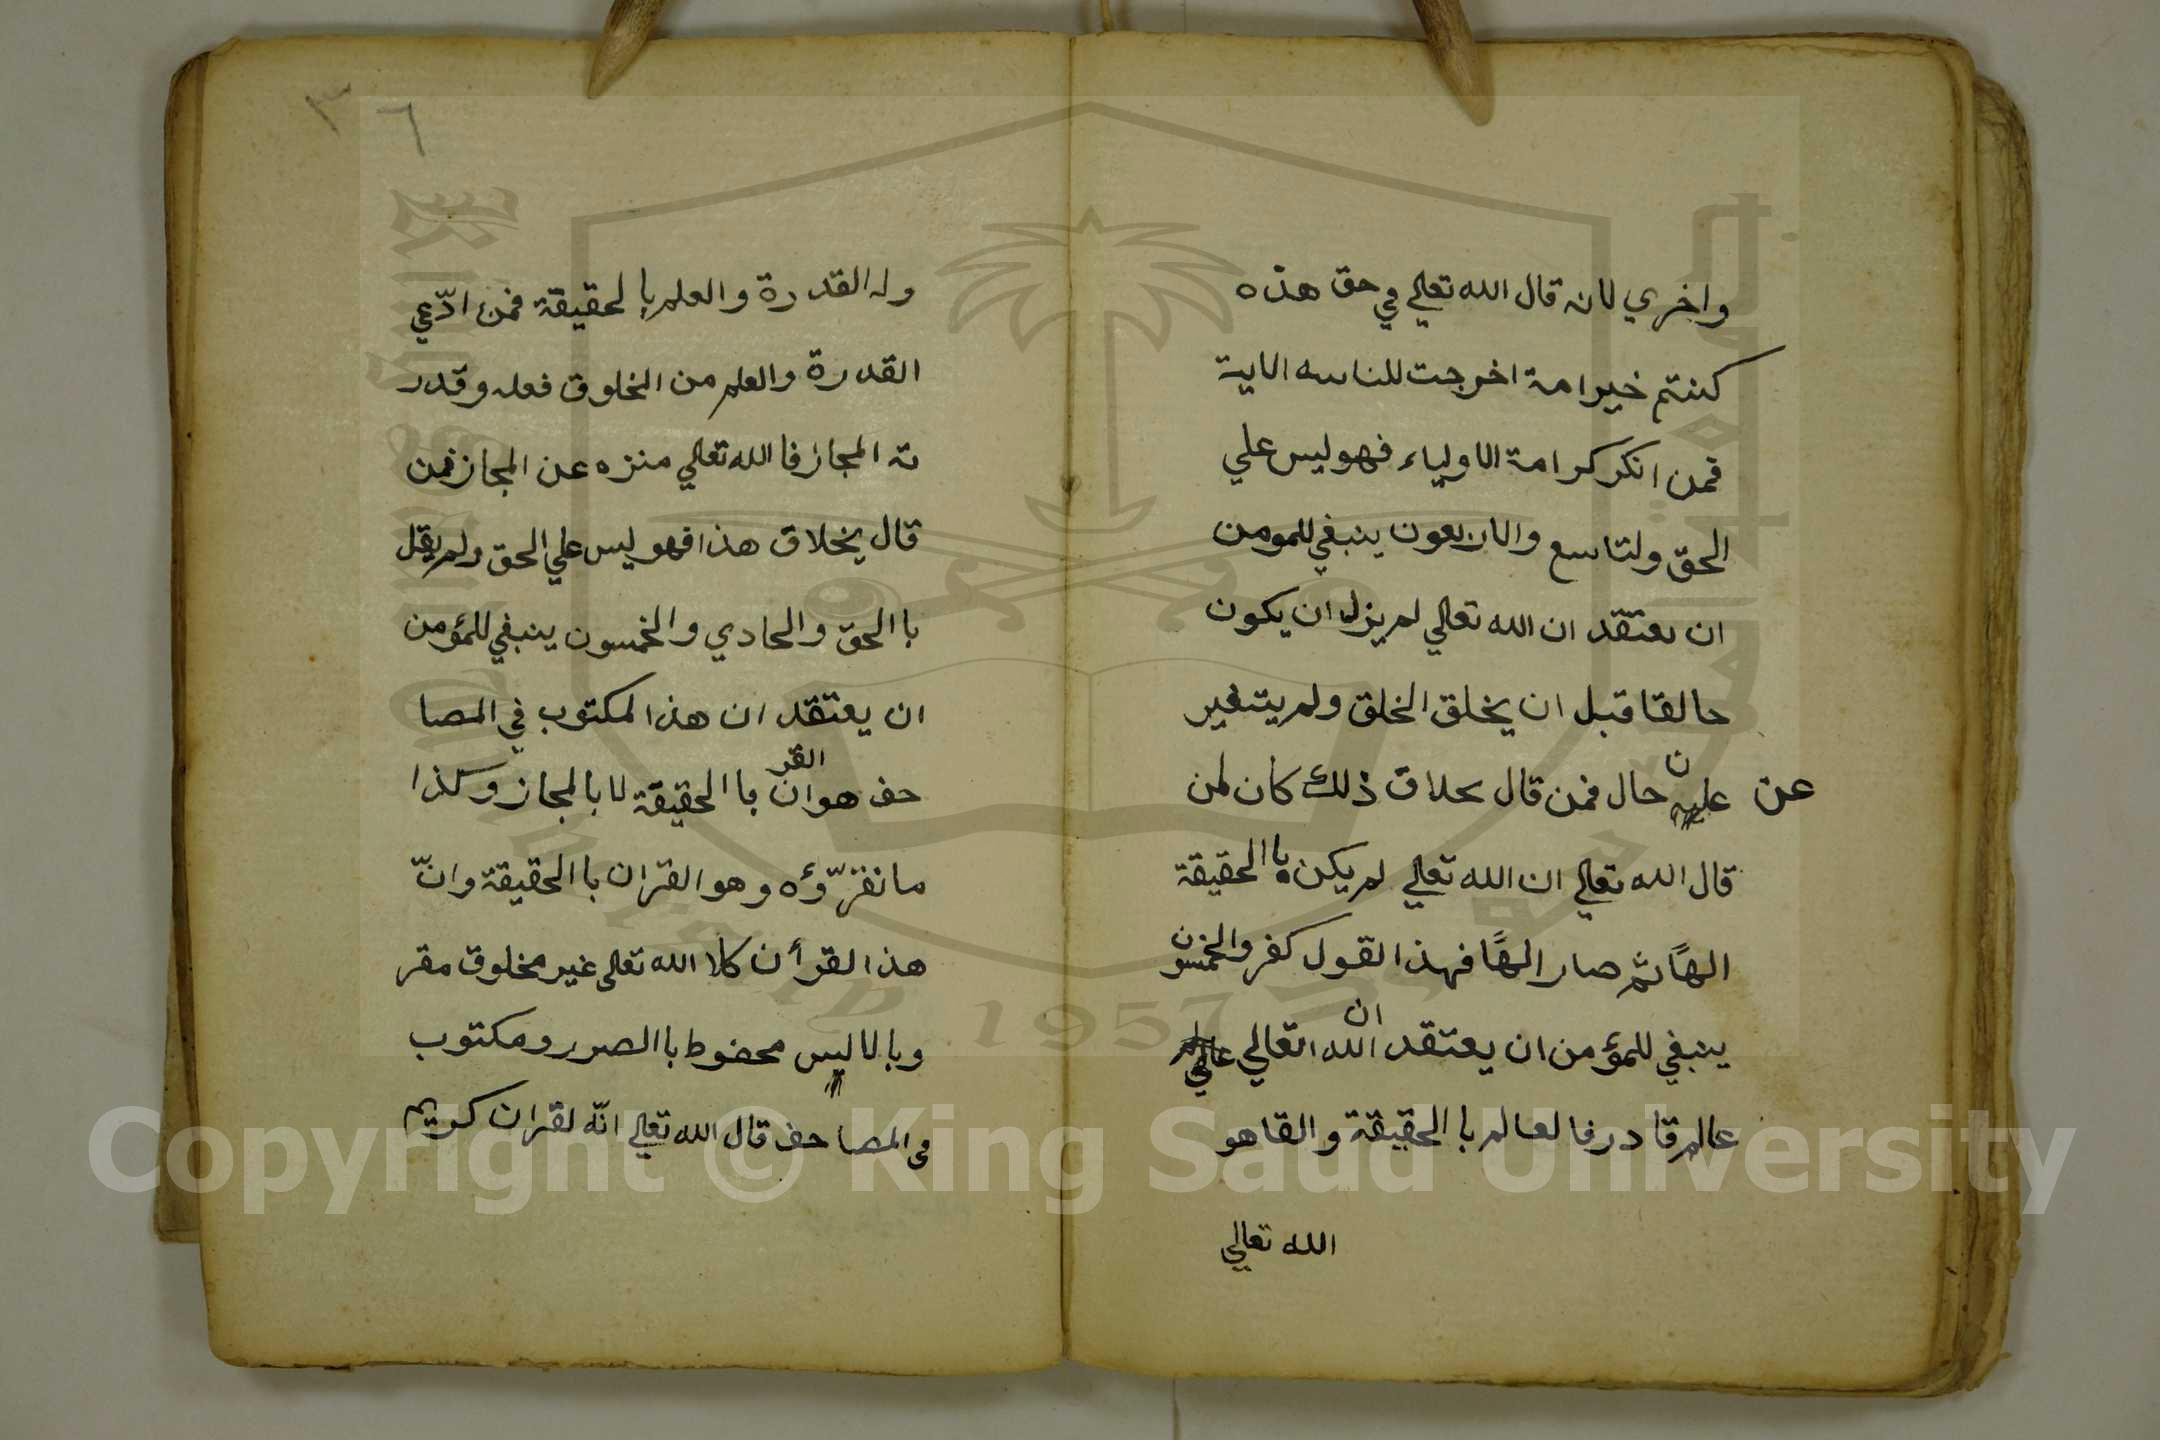 واخري لانه قال الله تعالي في حق هذه
كنتم خير امة اخرجت للناس الاية
فمن انكر كرامة الاولياء فهو ليس علي
الحق ولتاسع والاربعون ينبغي للمومن
ان يعتقد ان الله تعالي لم يزل ان يكون
خالقا قبل ان يخلق الخلق ولم يتغير
عن حال فمن قال بخلاف ذلك كان لمن
قال الله تعالي ان الله تعالي لم يكن باالحقيقة
الهًا ثم صار الهًا فهذا القول كفر والخمسون
ينبغي للمؤمن ان يعتقد ان الله تعالي
عالم قادر فالعالم باالحقيقة والقاهو
الله تعالي
٣٦
وله القدرة والعلم بالحقيقة فمن ادّعي
القدرة والعلم من المخلوق فعله وقدر
ته المجاز فا الله تعالي منزه عن المجاز فمن
قال بخلاف هذا فهو ليس علي الحق ولم يقل
باالحق والحادي والخمسون ينبغي للمؤمن
ان يعتقد ان هذا المكتوب في المصا
حف هو القران باالحقيقة لا بالمجاز وكذا
ما نقرّؤه وهو القران باالحقيقة وانّ
هذا القرأن كلا الله تعالى غير مخلوق مقر
وبالا ليس محفوظ باالصدر ومكتوب
في المصاحف قال الله تعالي انّه لقران كريم
Copyright © King Saud University
1957